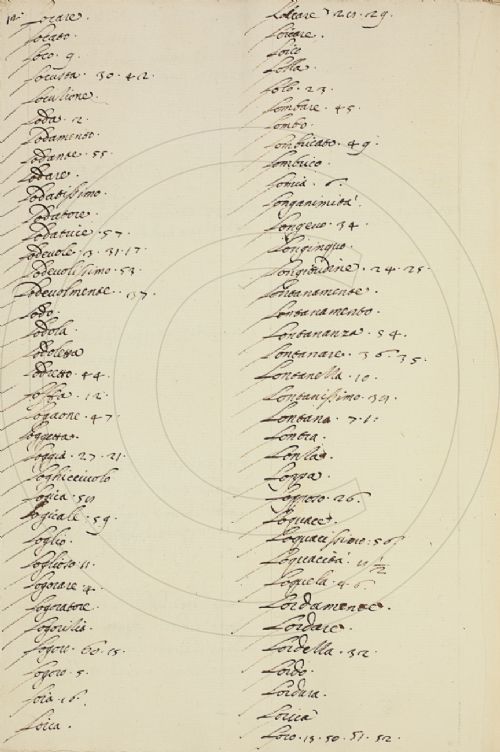 12.
Locare.
Locato.
Loco. 9.
Locusta. 30. 42.
Locutione.
Loda. 2.
Lodamento.
Lodante. 55.
Lodare.
Lodatissimo.
Lodatore.
Lodatrice. 57.
Lodevole. 3. 31. 17.
Lodevolissimo. 53.
Lodevolmente. 37.
Lodo.
Lodola.
Lodoletta
Lodretto. 44.
Loffa. 12.
Logaone. 47.
Loggetta.
Loggia. 27. 21.
Loghicciuolo
Logica. 59
Logicale. 59.
Loglio.
Loglioso 11.
Logorare. 4.
Logoratore.
Logoro. 60. 15.
Logoro. 5.
Loia. 16.
Loica.
Loicare. 29.
Loico
Lolla.
Lolo. 23.
Lombare. 45.
Lombo.
Lombricato. 49.
Lombrico.
Lomia. 6.
Longanimità.
Longevo. 34.
Longinquo.
Longitudine. 24. 25.
Lontanamente.
Lontanamento.
Lontananza. 54.
Lontanare. 36. 35.
Lontanella. 10.
Lontanissimo. 39.
Lontano. 7. 1.
Lontra.
Lonza.
Loppa.
Loquace.
Loquacissimo. 56.
Loquacità. 11 1/2
Loquela. 46.
Lordamente.
Lordare.
Lordella. 32.
Lordo.
Lordura.
Lorica
Loro. 13. 50. 51. 52.